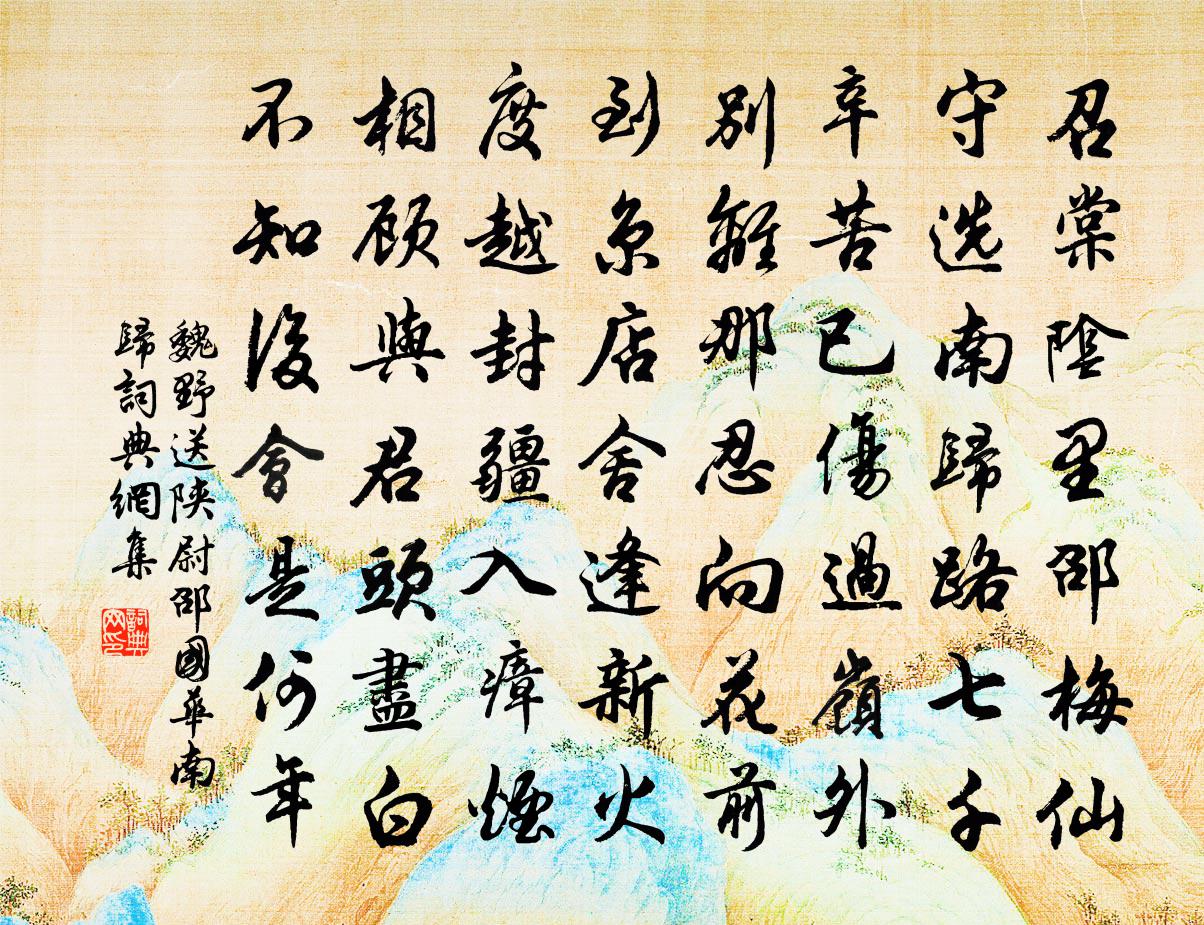 召棠陰里邵梅仙
守选南歸路七千
辛苦已傷過嶺外
別離那忍向花前
到京店舍逢新火
度越封疆入瘴煙
相顾與君頭盡白
不知後會是何年
魏野送陝尉邵國華南
歸詞典網集
詞典